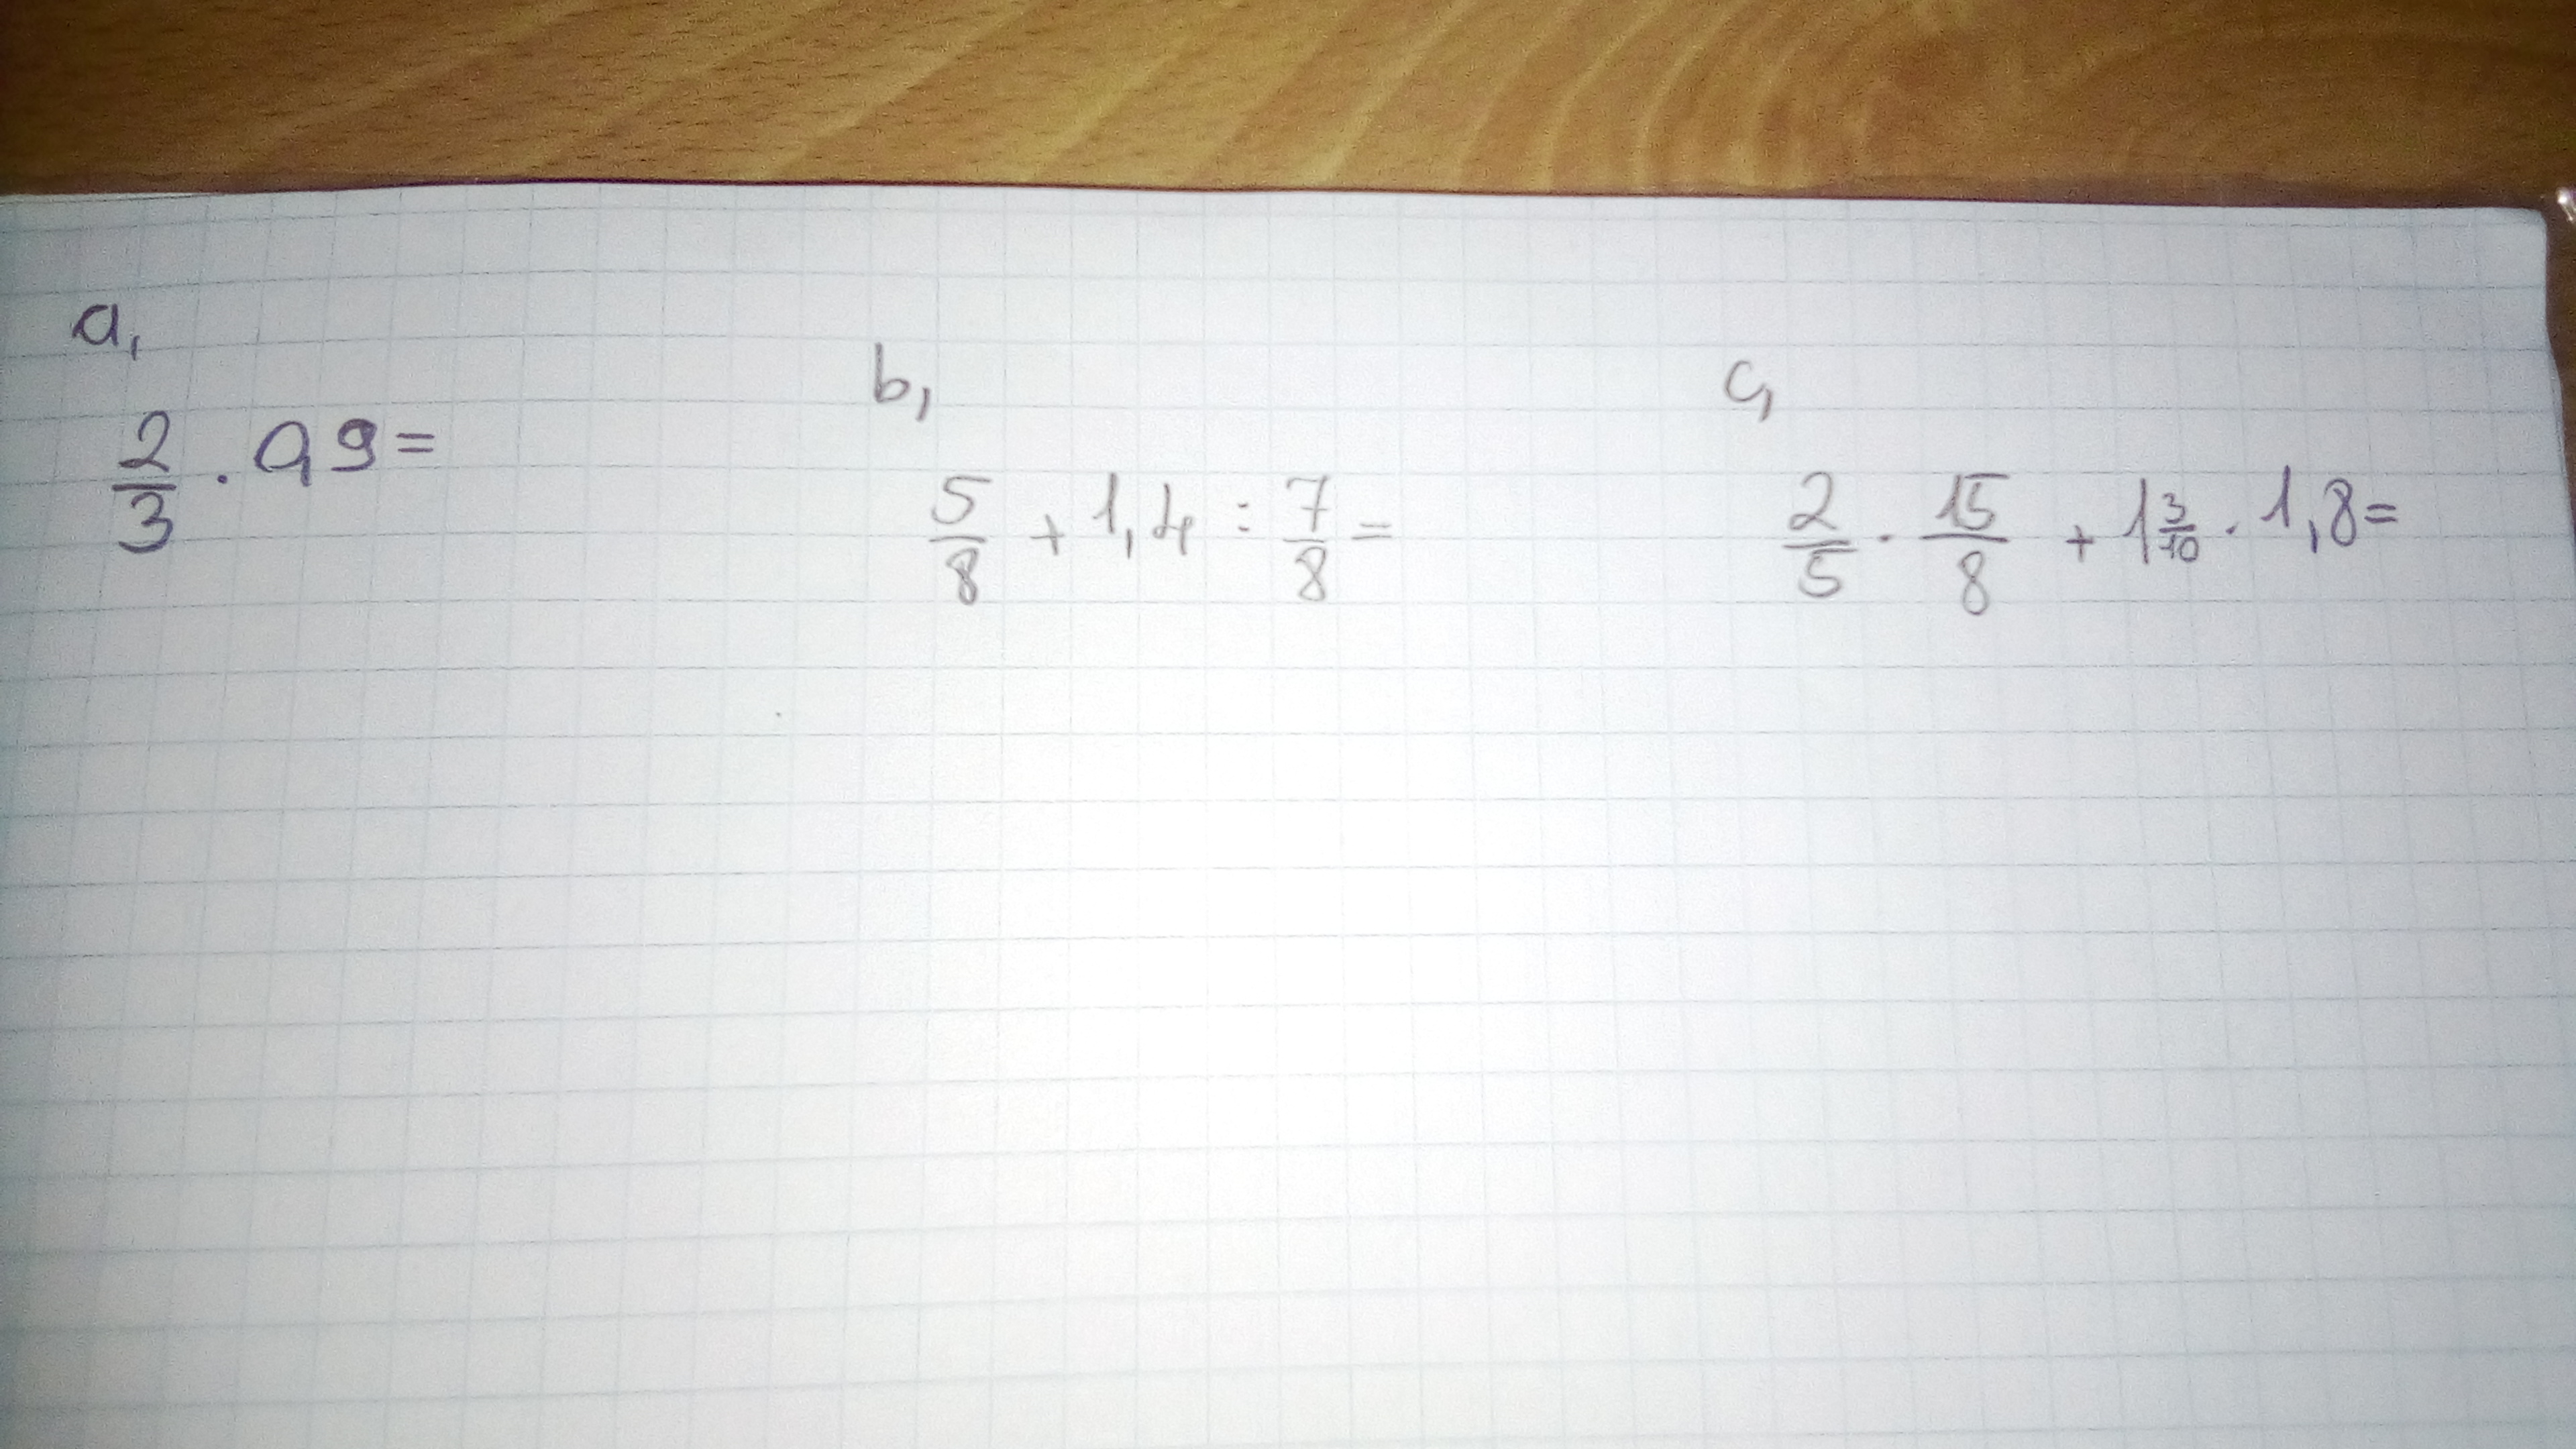 a,
2/3 · 0,9=
b,
5/8 + 1,4 : 7/8 =
c,
2/5 · 15/8 + 1 3/10 · 1,8=